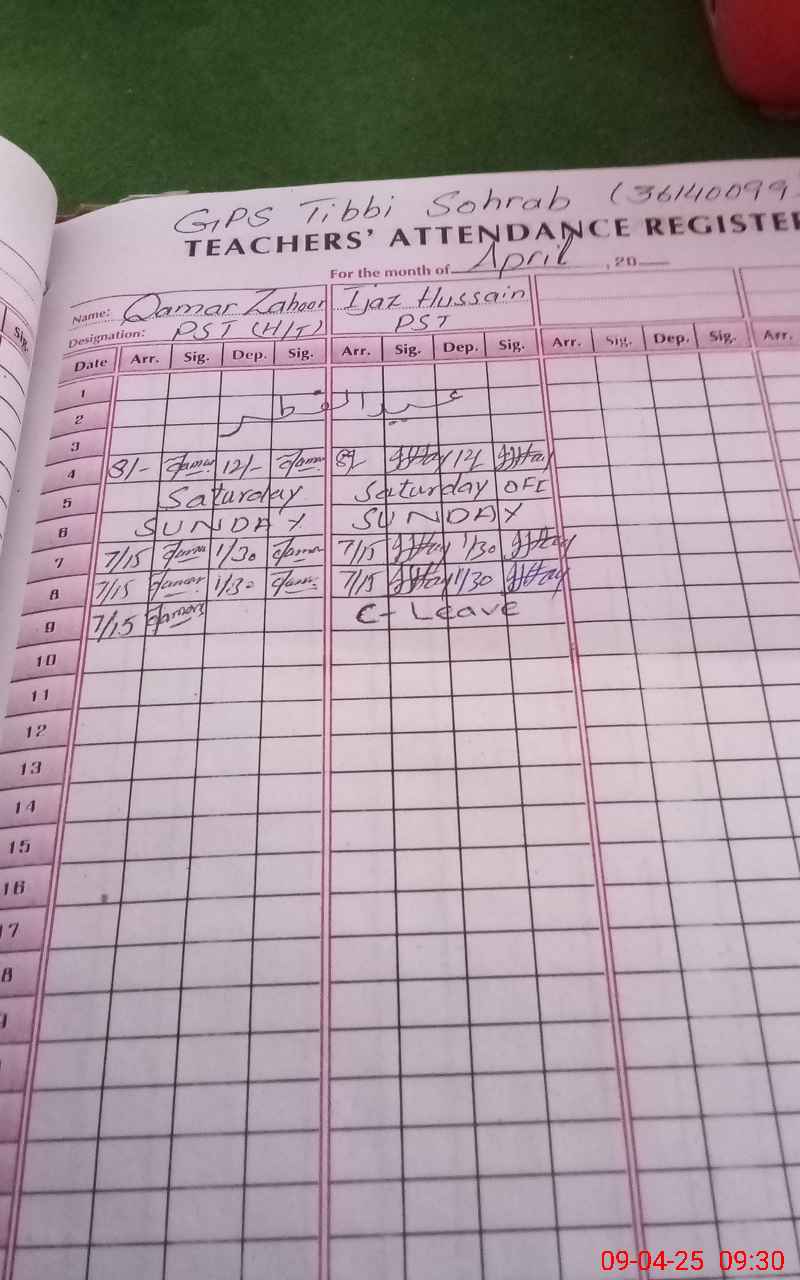 GPS Tibbi Sohrab (36140099
TEACHERS' ATTENDANCE REGISTER
For the month of April , 20
Name: Qamar Zahoor Ijaz Hussain
Designation: PST (H/T) PST
Date Arr. Sig. Dep. Sig. Arr. Sig. Dep. Sig. Arr. Sig. Dep. Sig. Arr.
Sig.
1
2 عید الفطر
3
4 8/- Qamar 12/- Qamar 8/ 12/
5 Saturday Saturday OFF
6 SUNDAY SUNDAY
7 7/15 Qamar 1/30 Qamar 7/15 1/30
8 7/15 Qamar 1/30 Qamar 7/15 1/30
9 7/15 Qamar C- Leave
10
11
12
13
14
15
16
17
8
09-04-25 09:30